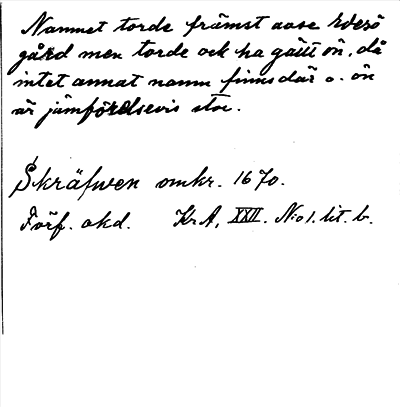 Namnet torde främst avse
gård men torde ock ha gällt ön, då
intet annat namn finns där o. ön
är jämförelsevis stor.
Skräfwen omkr. 1670.
Förf. okd. Kr.A, XXII. No 1. lit. b.